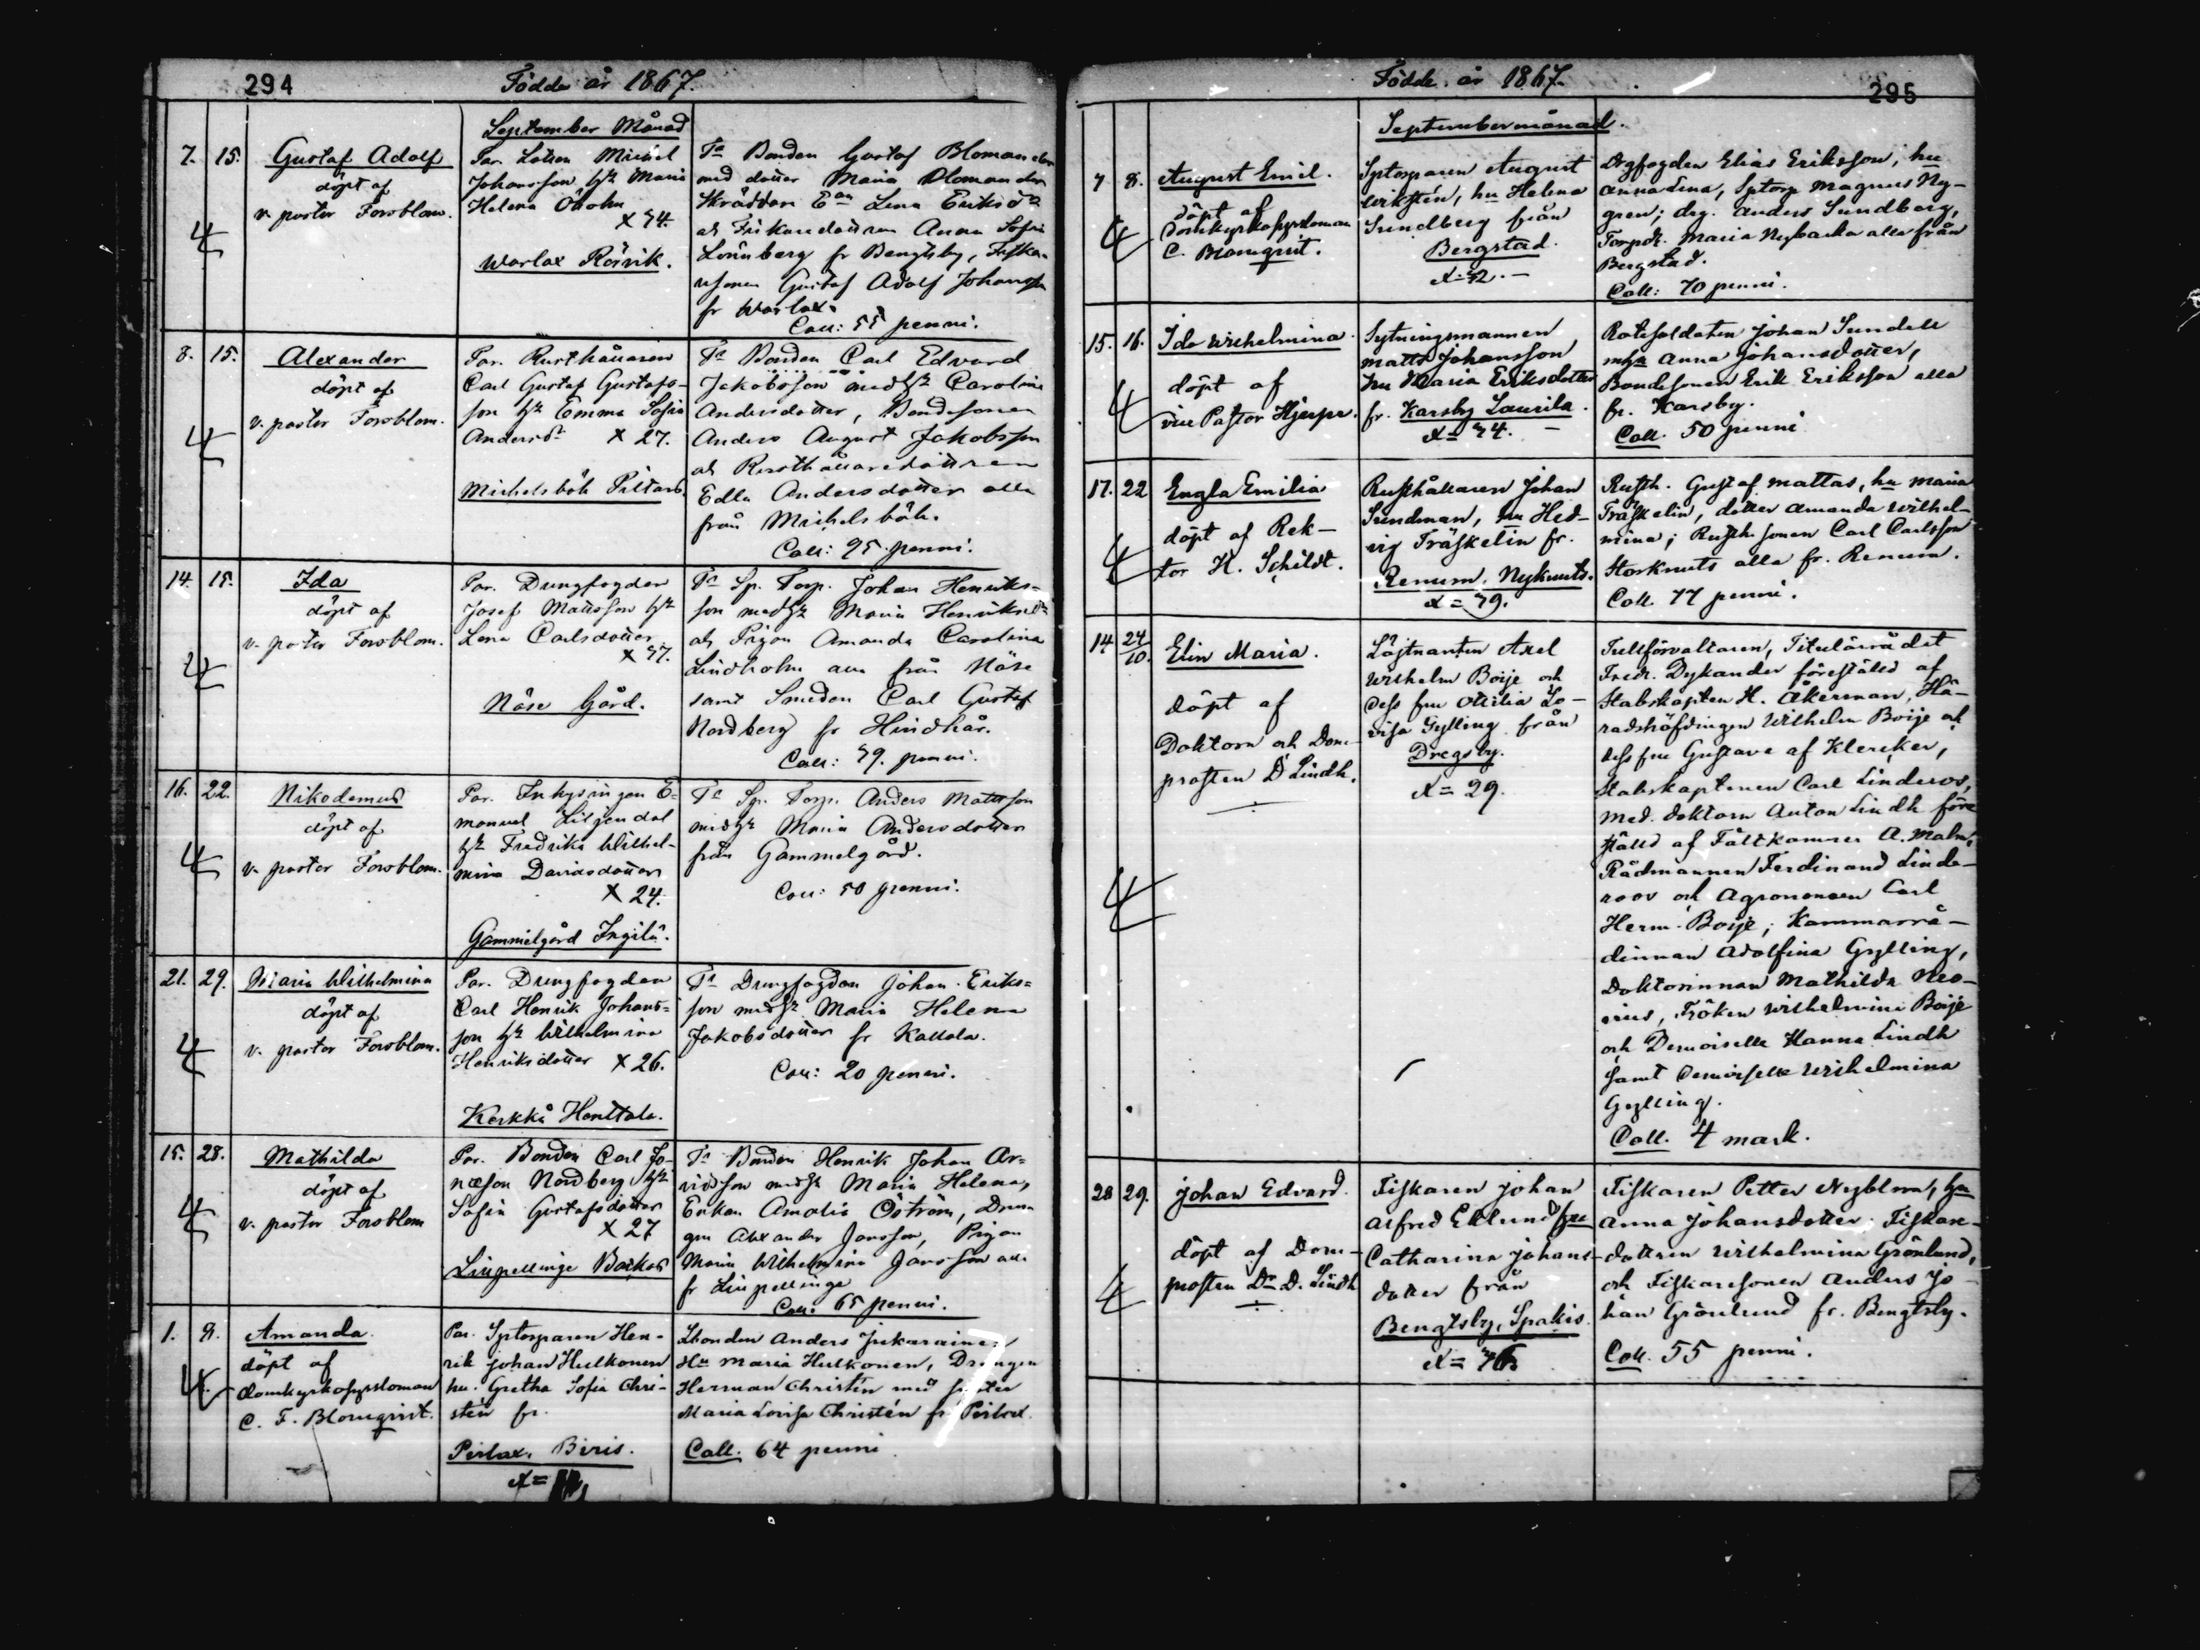 294
Födde år 1867.
September Månad
7. 15. Gustaf Adolf
döpt af
v. pastor Forsblom.
Par. Lotsen Michel
Johansson h:u Maria
Helena Öholm
X 34.
Warlax Rösvik.
Fr Bonden Gustaf Blomander
med dotter Maria Blomander
Skräddare E:an Lena Eriksd:r
och Fiskaredottren Anna Sofia
Lönnberg fr Bengtsby, Fiska-
resonen Gustaf Adolf Johansson
fr Warlax.
Coll: 55 penni.
8. 15. Alexander
döpt af
v. pastor Forsblom.
Par. Rusthållaren
Carl Gustaf Gustafs-
son h:u Emma Sofia
Andersd:r X 27.
Michelsböle Pittars
Fr Bonden Carl Edvard
Jakobsson med h:u Carolina
Andersdotter, Bondesonen
Anders August Jakobsson
och Rusthållaredottren
Edla Andersdotter alla
från Michelsböle.
Coll: 95 penni.
14. 15. Ida
döpt af
v. pastor Forsblom.
Par. Drängfogden
Josef Mattsson h:u
Lena Carlsdotter
X 37.
Näse Gård.
Fr Sp. Torp. Johan Henriks-
son med h:u Maria Henriksd:r
och Pigan Amanda Carolina
Lindholm alla från Näse
samt Smeden Carl Gustaf
Nordberg fr Hindhår.
Coll: 39. penni.
16. 22. Nikodemus
döpt af
v. pastor Forsblom.
Par. Inhysingen E-
manuel Liljendal
h:u Fredrika Wilhel-
mina Davidsdotter
X 24.
Gammelgård Ingilä.
Fr Sp. Torp. Anders Mattsson
med h:u Maria Andersdotter
från Gammelgård.
Coll: 50 penni.
21. 29. Maria Wilhelmina
döpt af
v. pastor Forsblom.
Par. Drängfogden
Carl Henrik Johans-
son h:u Wilhelmina
Henriksdotter X 26.
Kerkkå Hanttala.
Fr Drängfogden Johan Eriks-
son med h:u Maria Helena
Jakobsdotter fr Kallola.
Coll: 20 penni.
15. 28. Mathilda
döpt af
v. pastor Forsblom
Par. Bonden Carl Jo-
nasson Nordberg h:u
Sofia Gustafsdotter
X 27
Liljpellinge Backas
Fr Bonden Henrik Johan Ar-
vidsson med h:u Maria Helena,
Enkan Amalia Öström, Drän-
gen Alexander Jansson, Pigan
Maria Wilhelmina Jansson alla
fr Lillpellinge
Coll: 65 penni.
1. 8. Amanda.
döpt af
domkyrkosyssloman
C. F. Blomqvist.
Par. Sptorparen Hen-
rik Johan Hulkonen
hu. Gretha Sofia Chri-
stén fr.
Pirlax, Biris.
X=
Lbonden Anders Jukarainen
Hu Maria Hulkonen, Drängen
Herman Christén med syster
Maria Lovisa Christén fr Pirlax.
Coll. 64 penni
Födde år 1867.
295
Septembermånad.
7 8. August Emil.
döpt af
domkyrkosyssloman
C. Blomqvist.
Sptorparen August
Wikstén, hu Helena
Sundberg från
Bergstad.
X=32.
Drgfogden Elias Eriksson, hu
Anna Lena, Sptorp Magnus Ny-
gren; drg. Anders Sundberg,
Torpdr. Maria Nybacka alla från
Bergstad.
Coll: 70 penni.
15. 16. Ida Wilhelmina.
döpt af
vice Pastor Hjerpe.
Sytningsmannen
Matts Johansson
hu Maria Eriksdotter
fr. Karsby Laurila.
X=34.
Rotesoldaten Johan Sundell
m hu Anna Johansdotter,
Bondesonen Erik Eriksson alla
fr. Karsby.
Coll. 50 penni
17. 22 Engla Emilia
döpt af Rek-
tor H. Schildt.
Rusthållaren Johan
Sundman, hu Hed-
vig Träskelin fr.
Renum. Nyknuts.
X=39.
Rusth. Gustaf Mattas, hu Maria
Träskelin, dotter Amanda Wilhel-
mina; Rusth sonen Carl Carlsson
Storknuts alla fr. Renum.
Coll. 77 penni.
14 24/10. Elin Maria.
döpt af
Doktorn och Dom-
prosten D Lindh.
Löjtnanten Axel
Wilhelm Boije och
dess fru Otilia Lo-
visa Gylling från
Dregsby.
X=29.
Tullförvaltaren, Titulärrådet
Fredr. Dykander föreställd af
Stabskapten H. Åkerman, Hä-
radshöfdingen Wilhelm Boije och
dess fru Gustava af Klercker,
Stabskaptenen Carl Linderos,
Med. doktorn Anton Lindh före
ställd af Fältkamrer A. Malm,
Rådmannen Ferdinand Linde-
roos och Agronomen Carl
Herm. Boije; Kammarrå-
dinnan Adolfina Gylling,
Doktorinnan Mathilda Neo-
vius, Fröken Wilhelmina Boije
och Demoiselle Hanna Lindh
samt Demoiselle Wilhelmina
Gylling.
Coll. 4 mark.
28 29. Johan Edvard.
döpt af Dom-
prosten Dr D. Lindh
Fiskaren Johan
Alfred Eklund hu
Catharina Johans-
dotter från
Bengtsby, Spakis.
X=36
Fiskaren Petter Nyblom, hu
Anna Johansdotter; Fiskare-
dottren Wilhelmina Grönlund,
och Fiskaresonen Anders Jo-
han Grönlund fr. Bengtsby.
Coll. 55 penni.